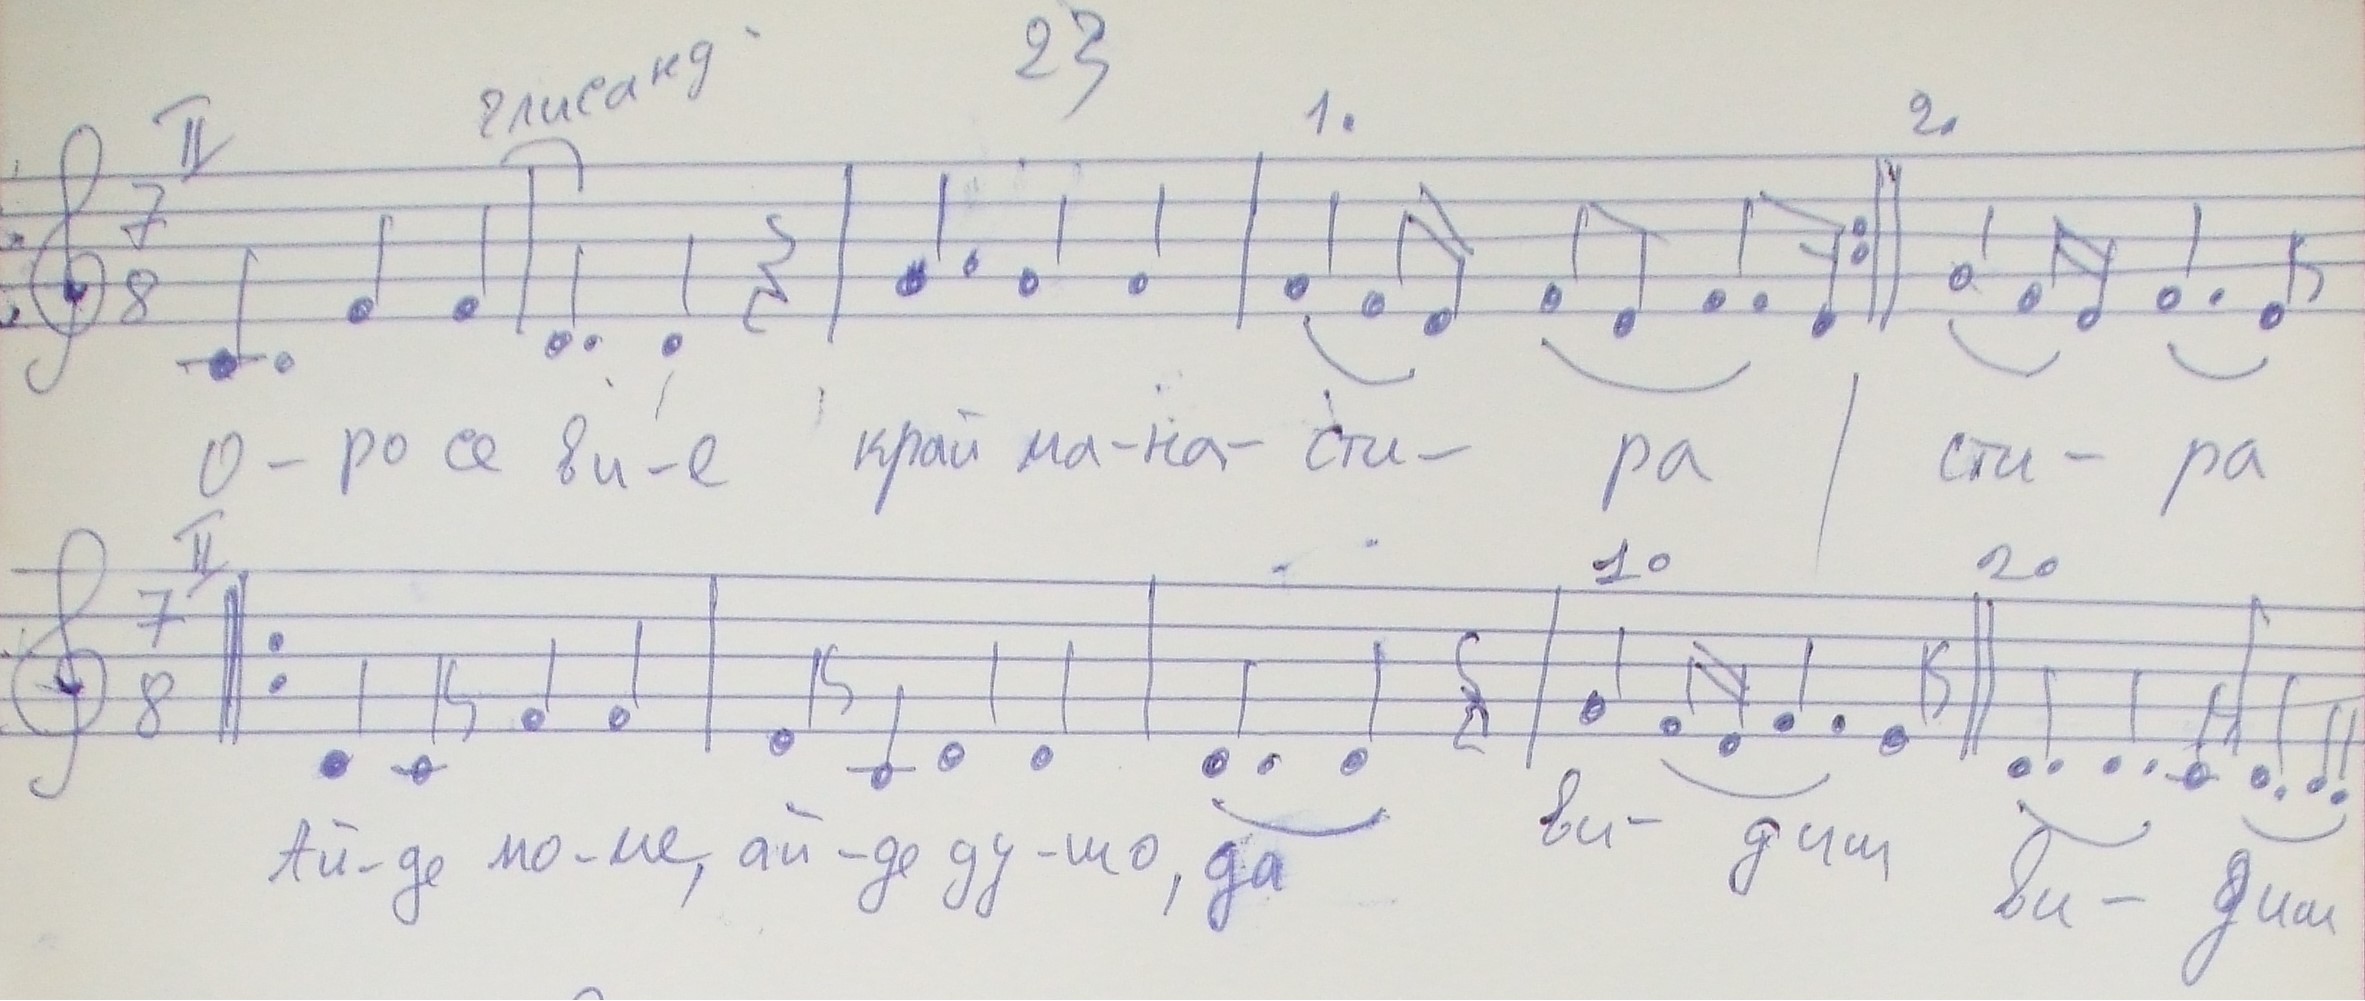 23
глисанд.
II 1. 2.
7
8
О-ро се ви-е край ма-на-сти-ра / сти-ра
II 1. 2.
7
8
Ай-де мо-ме, ай-де ду-шо, да ви-диш ви-диш